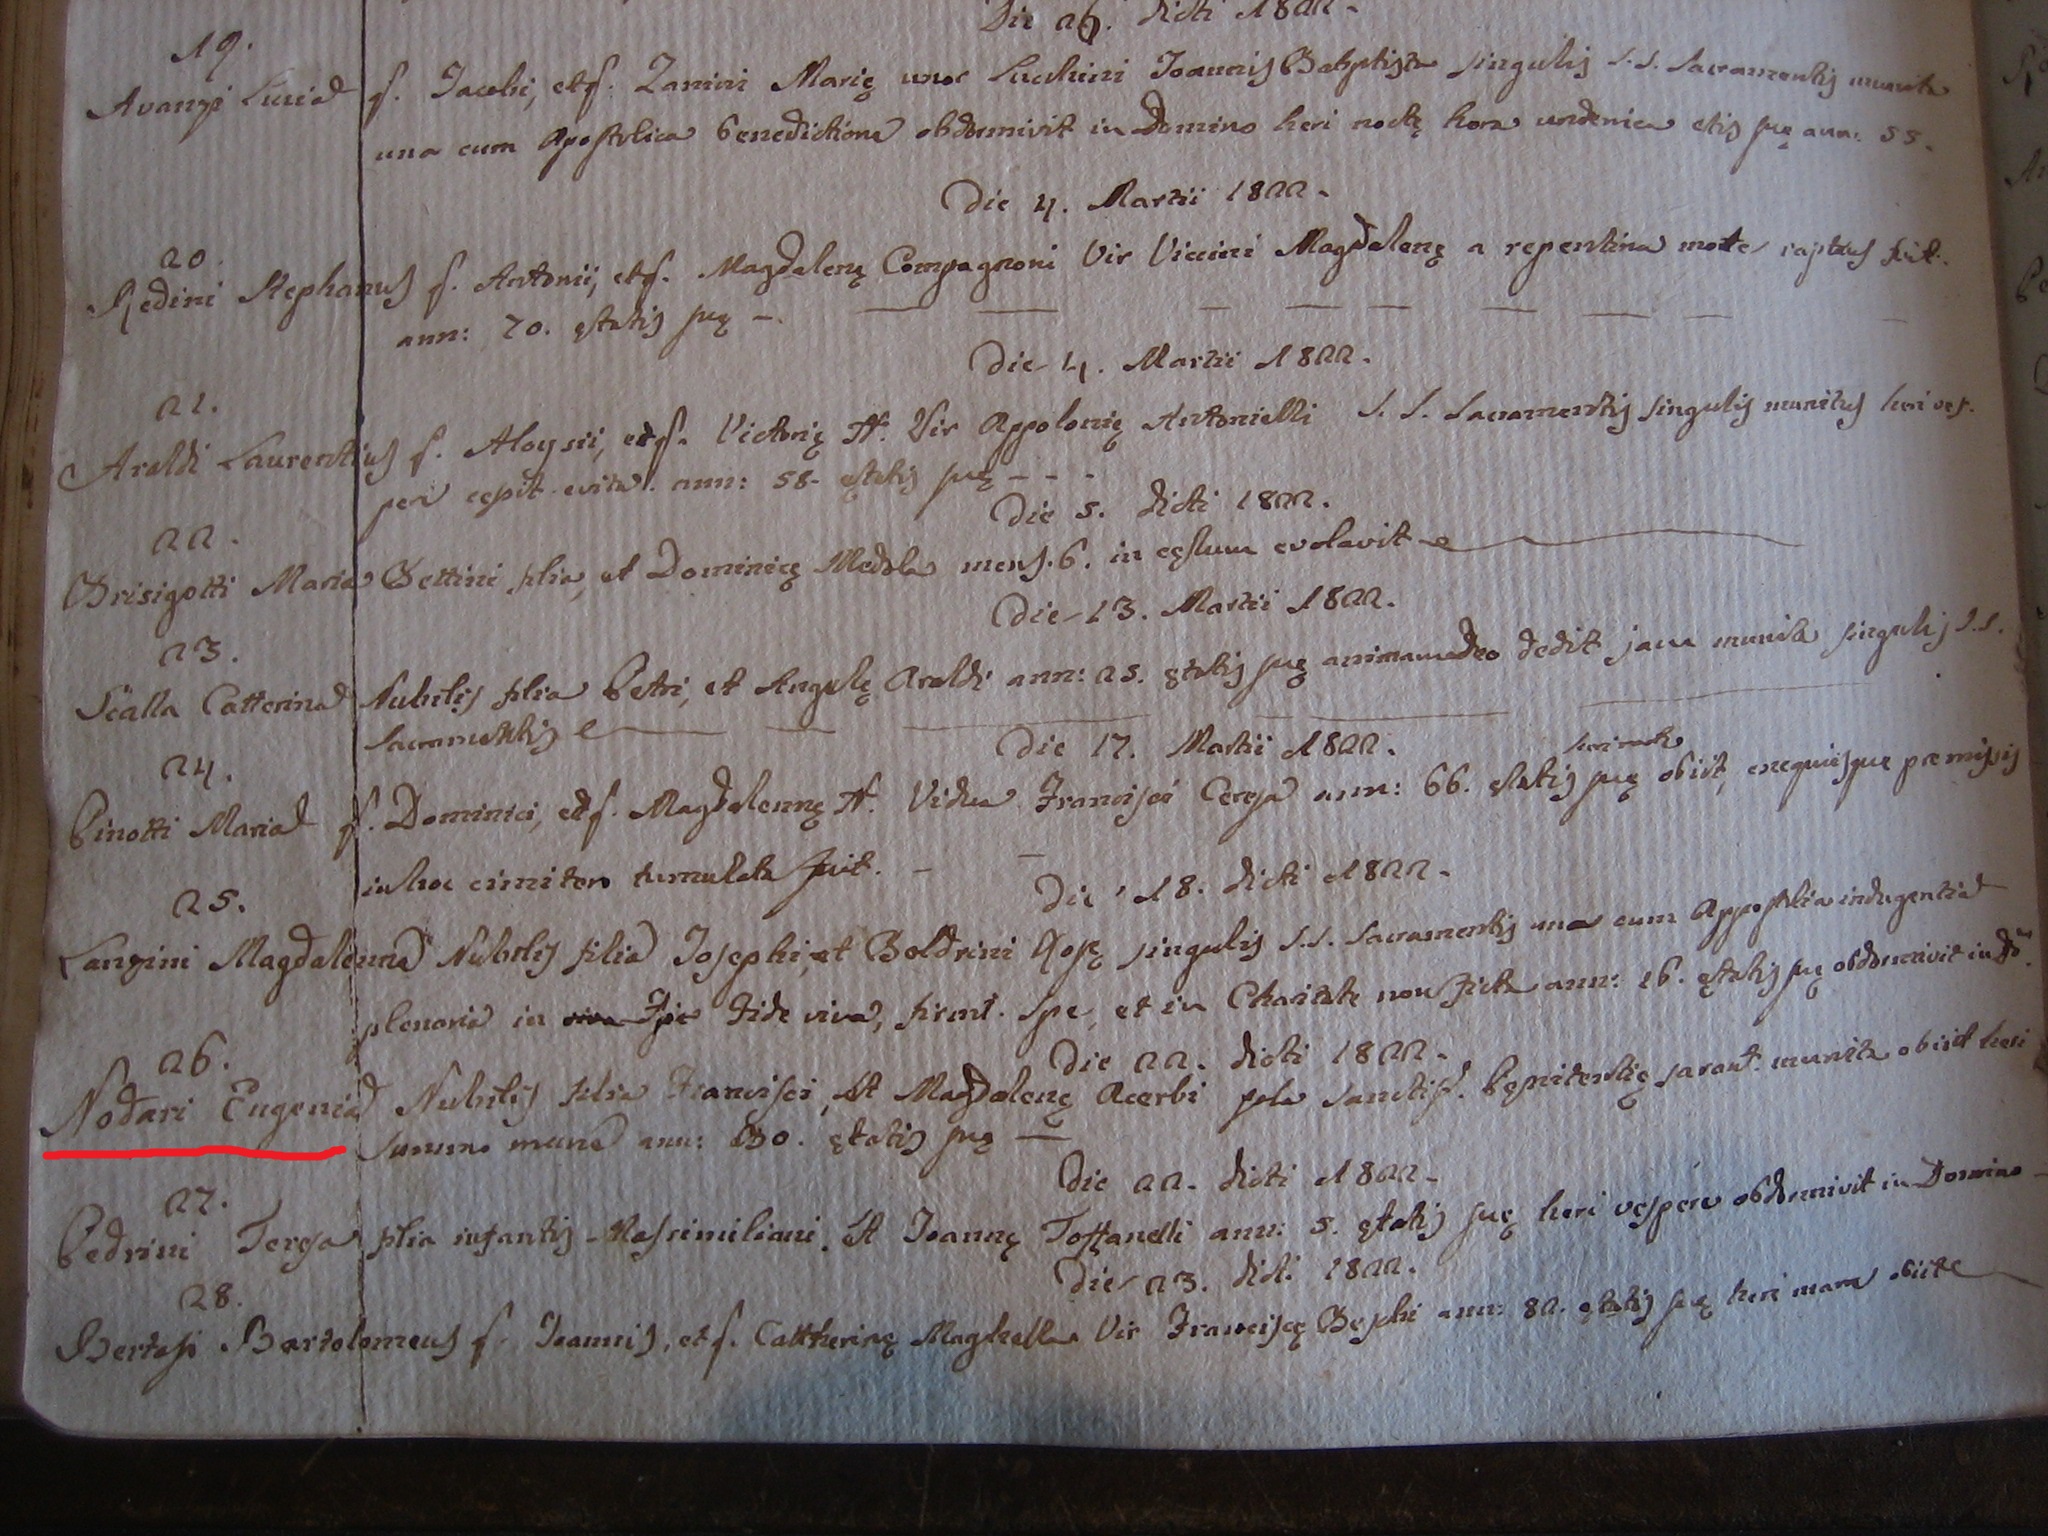 Die 26. dicti 1822.
19.
Avanzi Lucia f. Jacobi, et f. Zanini Marię uxor Luchini Joannis Babptista singulis S.S. Sacramentis munita
una cum Apostolica benedictione obdormivit in Domino heri noctę hora undenica etis suę ann: 55.
Die 4. Martii 1822.
20.
Redini Stephanus f. Antonii, et f. Magdalenę Compagnoni Vir Vicini Magdalenę a repentina morte raptus fuit.
ann: 70. ętatis suę —.
Die 4. Martii 1822.
21.
Araldi Laurentius f. Aloysii, et f. Victorię N. Vir Appolonię Antonielli S. S. Sacramentis singulis munitus heri ves-
peri cęsit evita. ann: 58. ętatis suę - - -
Die 5. dicti 1822.
22.
Brisigotti Maria Bettini filia, et Dominicę Medola mens. 6. in cęlum evolavit
Die 13. Martii 1822.
23.
Scalla Catterina Nubilis filia Petri, et Angelę Araldi ann: 25. ętatis suę animam Deo dedit jam munita singulis S.S.
Sacramentis
Die 17. Martii 1822.
24.
Pinotti Maria f. Dominici, et f. Magdalennę N. Vidua Francisci Ceresa ann: 66. ętatis suę obiit, exequiisque premissis
in hoc cimitero tumulata fuit. -
Die 18. dicti 1822.
25.
Lanzini Magdalenna Nubilis filia Josephi, et Boldrini Rosę singulis S.S. Sacramentis una cum Appostolica indugentia
plenaria in Fide viva, firm. Spe, et in Charitate non ficta ann: 26. ętatis suę obdormivit in Dō.
Die 22. dicti 1822.
26.
Nodari Eugenia Nubilis filia Francisci, et Magdalenę Acerbi sola Sanctis. Pęnitentię saramt. munita obiit heri
summo mane ann: 30. ętatis suę —
Die 22. dicti 1822.
27.
Pedrini Teresa filia infantis Massimiliani, et Joannę Toffanelli ann: 5. ętatis suę heri vespere obdormivit in Domino -
Die 23. dicti 1822.
28.
Bertasi Bartolomeus f. Joannis, et f. Cattherinę Magkella Vir Franciscę Beschi ann: 82. ętatis suę heri mane obiit